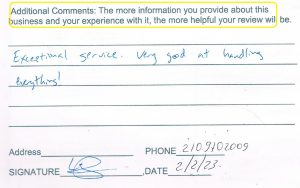 Additional Comments: The more information you provide about this
business and your experience with it, the more helpful your review will be.
Exceptional service. Very good at handling
everything!
Address
PHONE 2109702009
SIGNATURE
,DATE 2/2/23